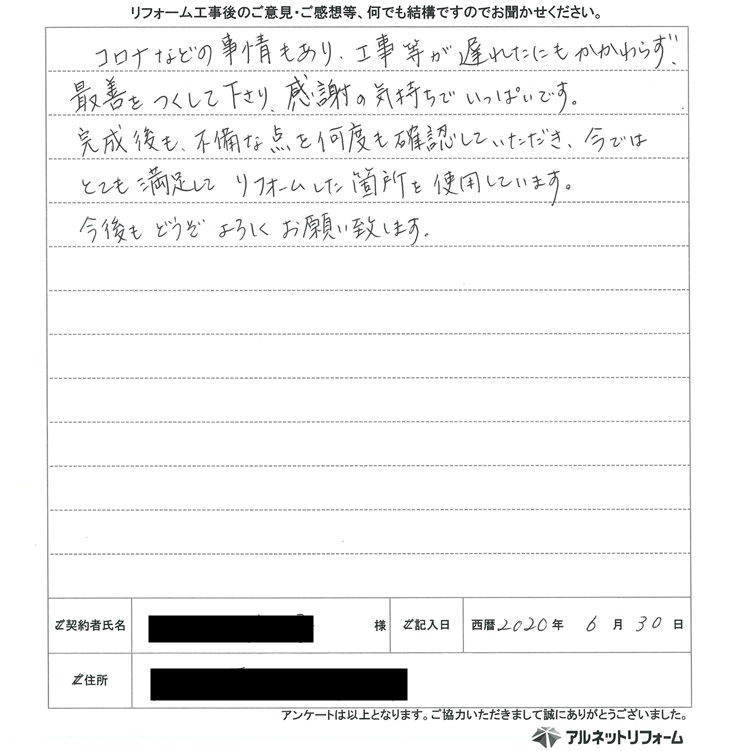 リフォーム工事後のご意見・ご感想等、何でも結構ですのでお聞かせください。
コロナなどの事情もあり、工事等が遅れたにもかかわらず、
最善をつくして下さり、感謝の気持ちでいっぱいです。
完成後も、不備な点を何度も確認していただき、今では
とても満足して リフォームした箇所を使用しています。
今後もどうぞよろしくお願い致します。
ご契約者氏名 様 ご記入日 西暦2020年 6月30日
ご住所
アンケートは以上となります。ご協力いただきまして誠にありがとうございました。
アルネットリフォーム